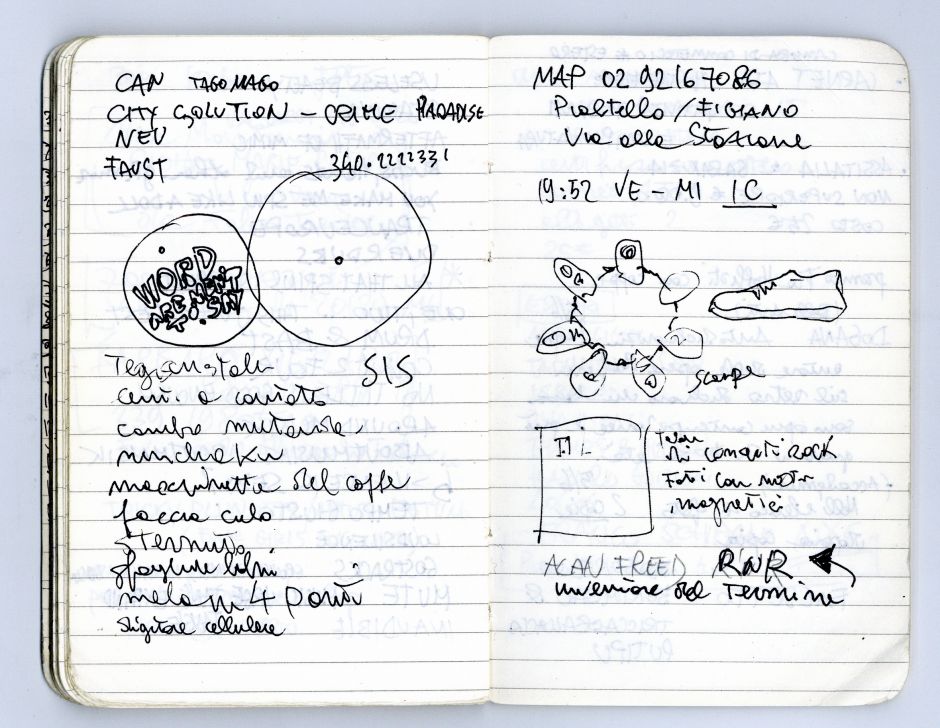 CAN TAGO MAGO
CITY SOLUTION - CRIME PARADISE
NEU
FAUST 340.2222331
WORD
ARE MEANT
TO . SAY
SIS
cambio mutande
nunchaku
macchinetta del caffe
faccia culo
sternuto
sfogliare libri
mela in 4 parti
digitare cellulare
MAP 02 92167086
Pioltello / FIGIANO
Via alla Stazione
19:52 VE - MI IC
scarpe
di concerti rock
Foti con nastri
magnetici
ALAN FREED RNR
inventore del Termine